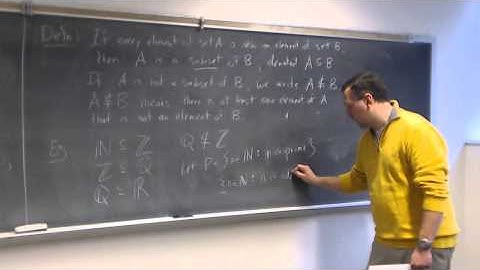 Defn: If every element of set A is also an element of set B,
then A is a subset of B, denoted A ⊆ B
If A is not a subset of B, we write A ⊈ B.
A ⊈ B means there is at least one element of A
that is not an element of B.
Ex ℕ ⊆ ℤ
ℤ ⊆ ℚ
ℚ ⊆ ℝ
ℚ ⊈ ℤ
Let P = { n ∈ ℕ : n is prime }
{ n ∈ ℕ : n is